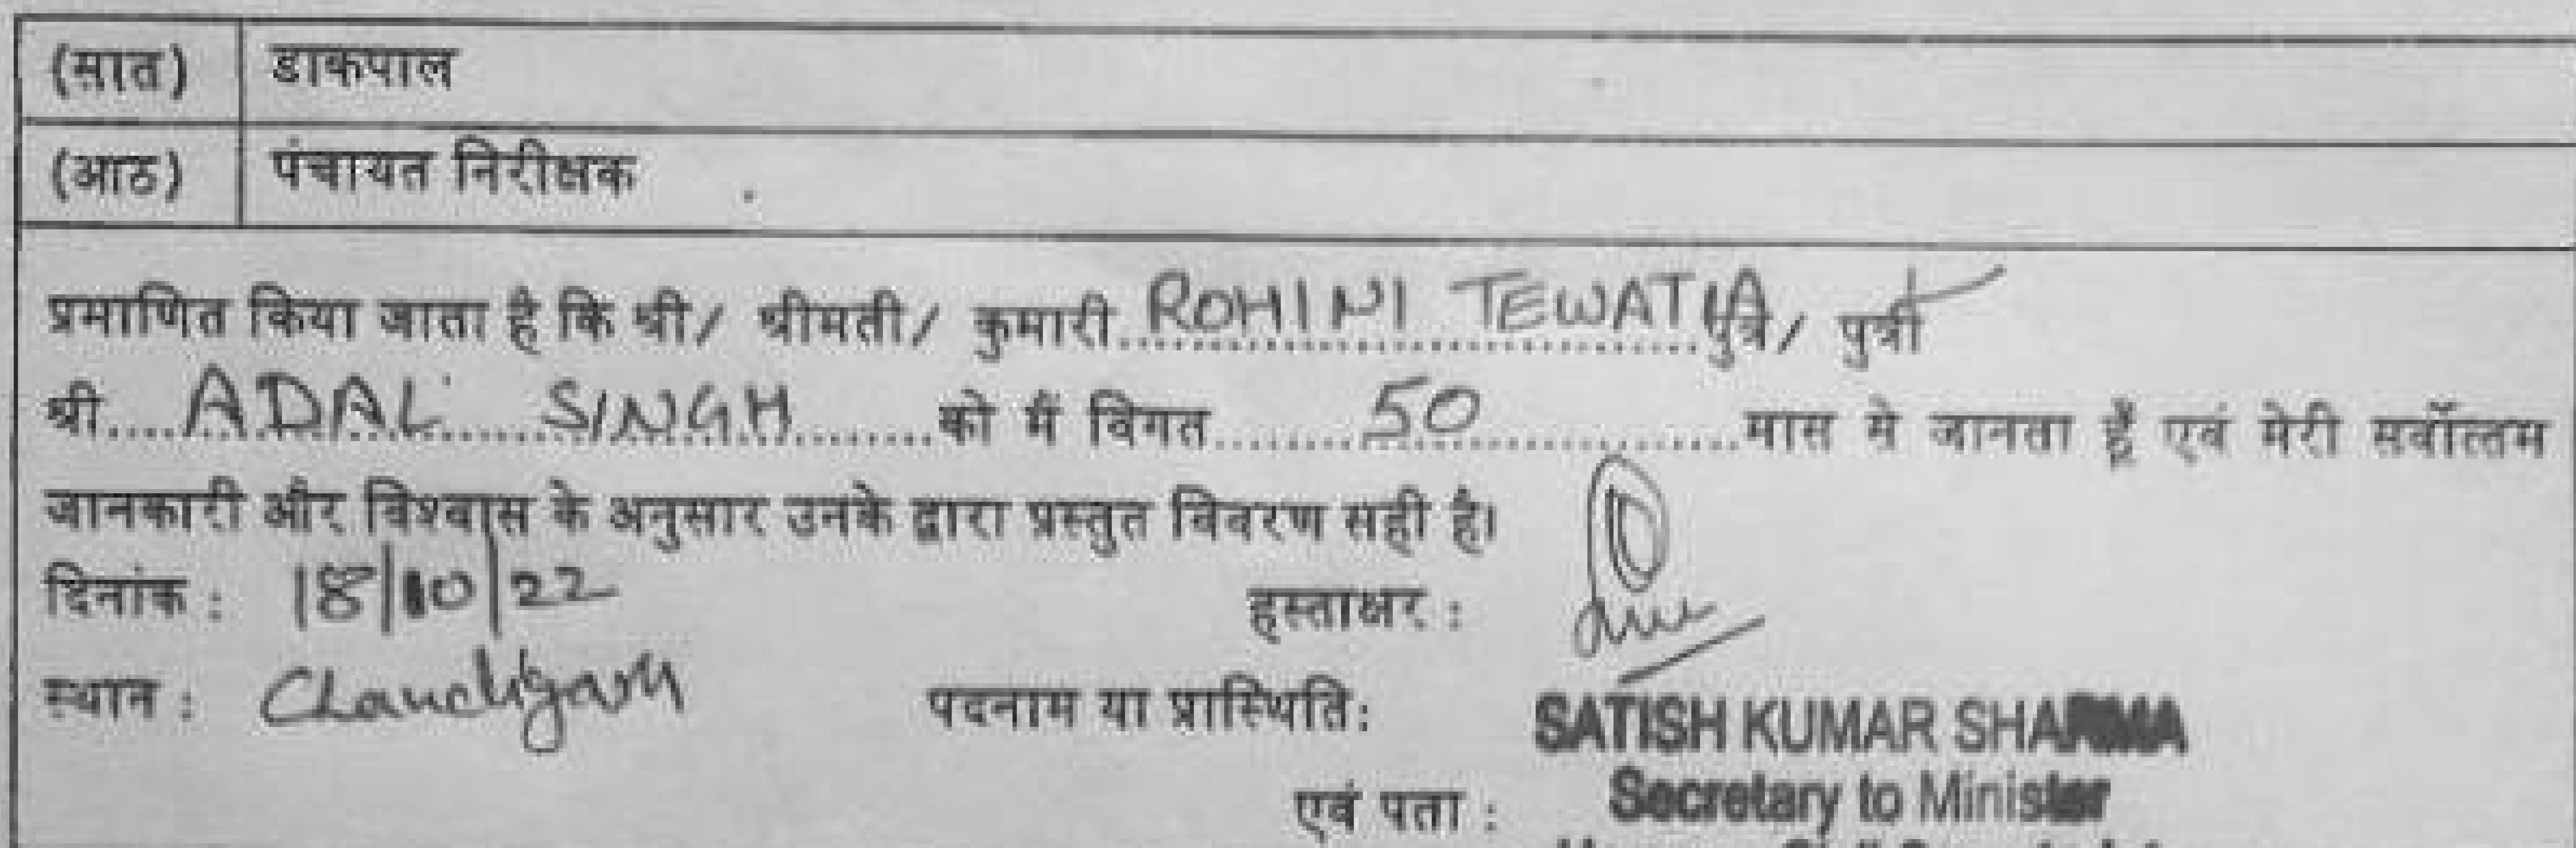 (सात) डाकपाल
(आठ) पंचायत निरीक्षक
प्रमाणित किया जाता है कि श्री/ श्रीमती/ कुमारी..ROHINI TEWATIA पुत्र/ पुत्री
श्री.....ADAL SINGH..........को मैं विगत..........50....................मास से जानता हूँ एवं मेरी सर्वोत्तम
जानकारी और विश्वास के अनुसार उनके द्वारा प्रस्तुत विवरण सही है।
दिनांक : 18/10/22 हस्ताक्षर :
स्थान : Chandigarh पदनाम या प्रास्थिति: SATISH KUMAR SHARMA
एवं पता : Secretary to Minister